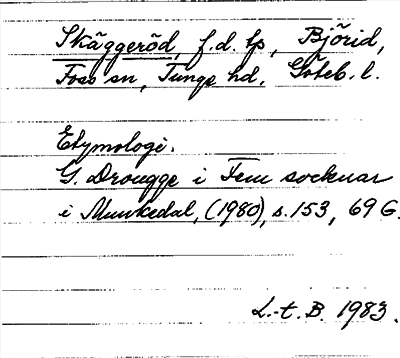 Skäggeröd, f.d. lp, Björid,
Foss sn, Tunge hd, Göteb. l.
Etymologi.
G. Drougge i Fem socknar
i Munkedal, (1980), s. 153, 69 G.
L.-t. B. 1983.